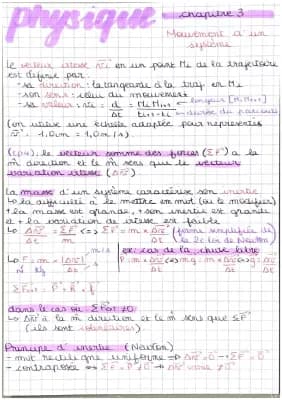 physique
chapitre 3
Mouvement d'un système
Le vecteur vitesse v⃗i en un point Mi de la trajectoire
est défini par:
- sa direction: la tangente à la traj en Mi
- son sens: celui du mouvement
- sa valeur: vi = d/Δt = MiMi+1/ti+1-ti ← longueur [MiMi+1] ← durée du parcours
(on utilise une échelle adaptée pour représenter
v⃗: 1,0cm = 1,0m/s).
le vecteur somme des forces (ΣF⃗) a la
m̂ direction et le m̂ sens que le vecteur
variation vitesse (Δv⃗)
La masse d'un système caractérise son inertie
↳ la difficulté à le mettre en mvt (ou le modifier)
+ la masse est grande, + son inertie est grande
et + la variation de vitesse est faible
↳ Δv⃗/Δt = ΣF⃗/m <=> ΣF⃗ = m × Δv⃗/Δt (forme simplifiée de la 2e loi de Newton)
↳ F = m × Δv/Δt
N kg m/s s
ex: cas de la chute libre
P⃗ = m × Δv⃗/Δt <=> mg⃗ = m × Δv⃗/Δt <=> g⃗ = Δv⃗/Δt
ΣF⃗ext = P⃗ + R⃗ + f⃗
dans le cas où ΣF⃗ext ≠ 0⃗
↳ Δv⃗ a la m̂ direction et le m̂ sens que ΣF⃗
(ils sont colinéaires).
Principe d'inertie (Newton)
- mvt rectiligne uniforme => Δv⃗ = 0⃗ → ΣF⃗ = 0⃗
- contraposée ↔ ΣF⃗ ≠ 0⃗ → Δv⃗ ≠ 0⃗